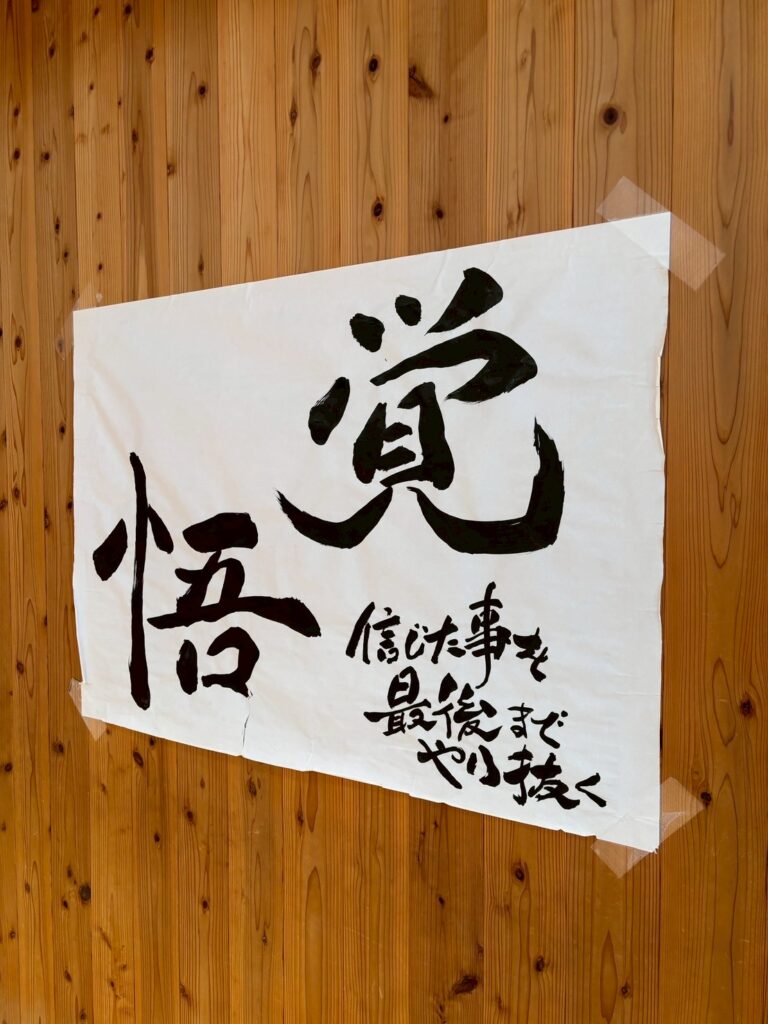 覚悟
信じた事を
最後まで
やり抜く